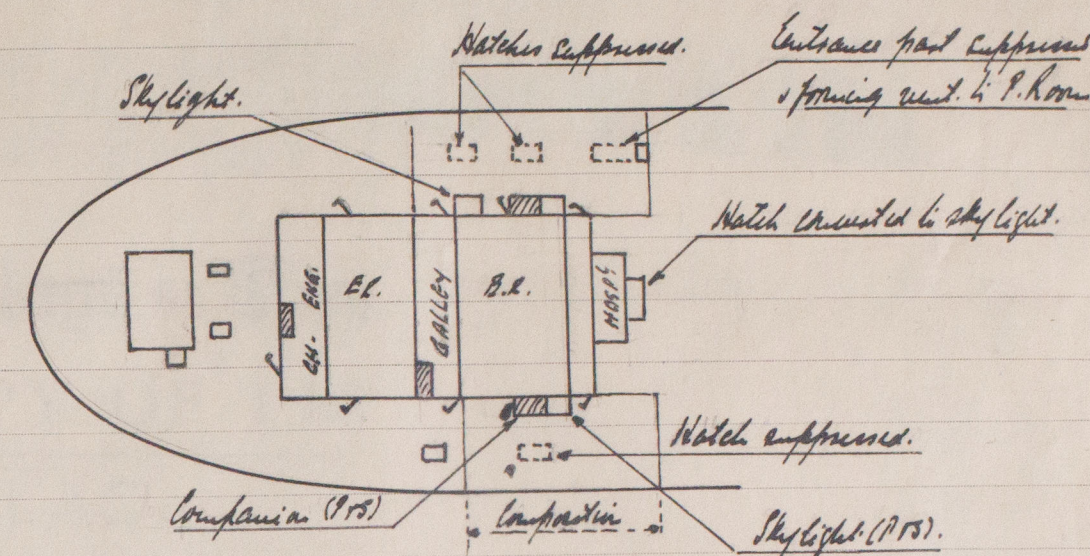 Hatches suppressed.
Entrance part suppressed
& forming vent. to P. Room
Skylight.
Hatch converted to skylight.
CH. ENG.
E.R.
GALLEY
B.R.
HOSP.
Hatch suppressed.
Companion (P&S)
Composition
Skylight (P&S).